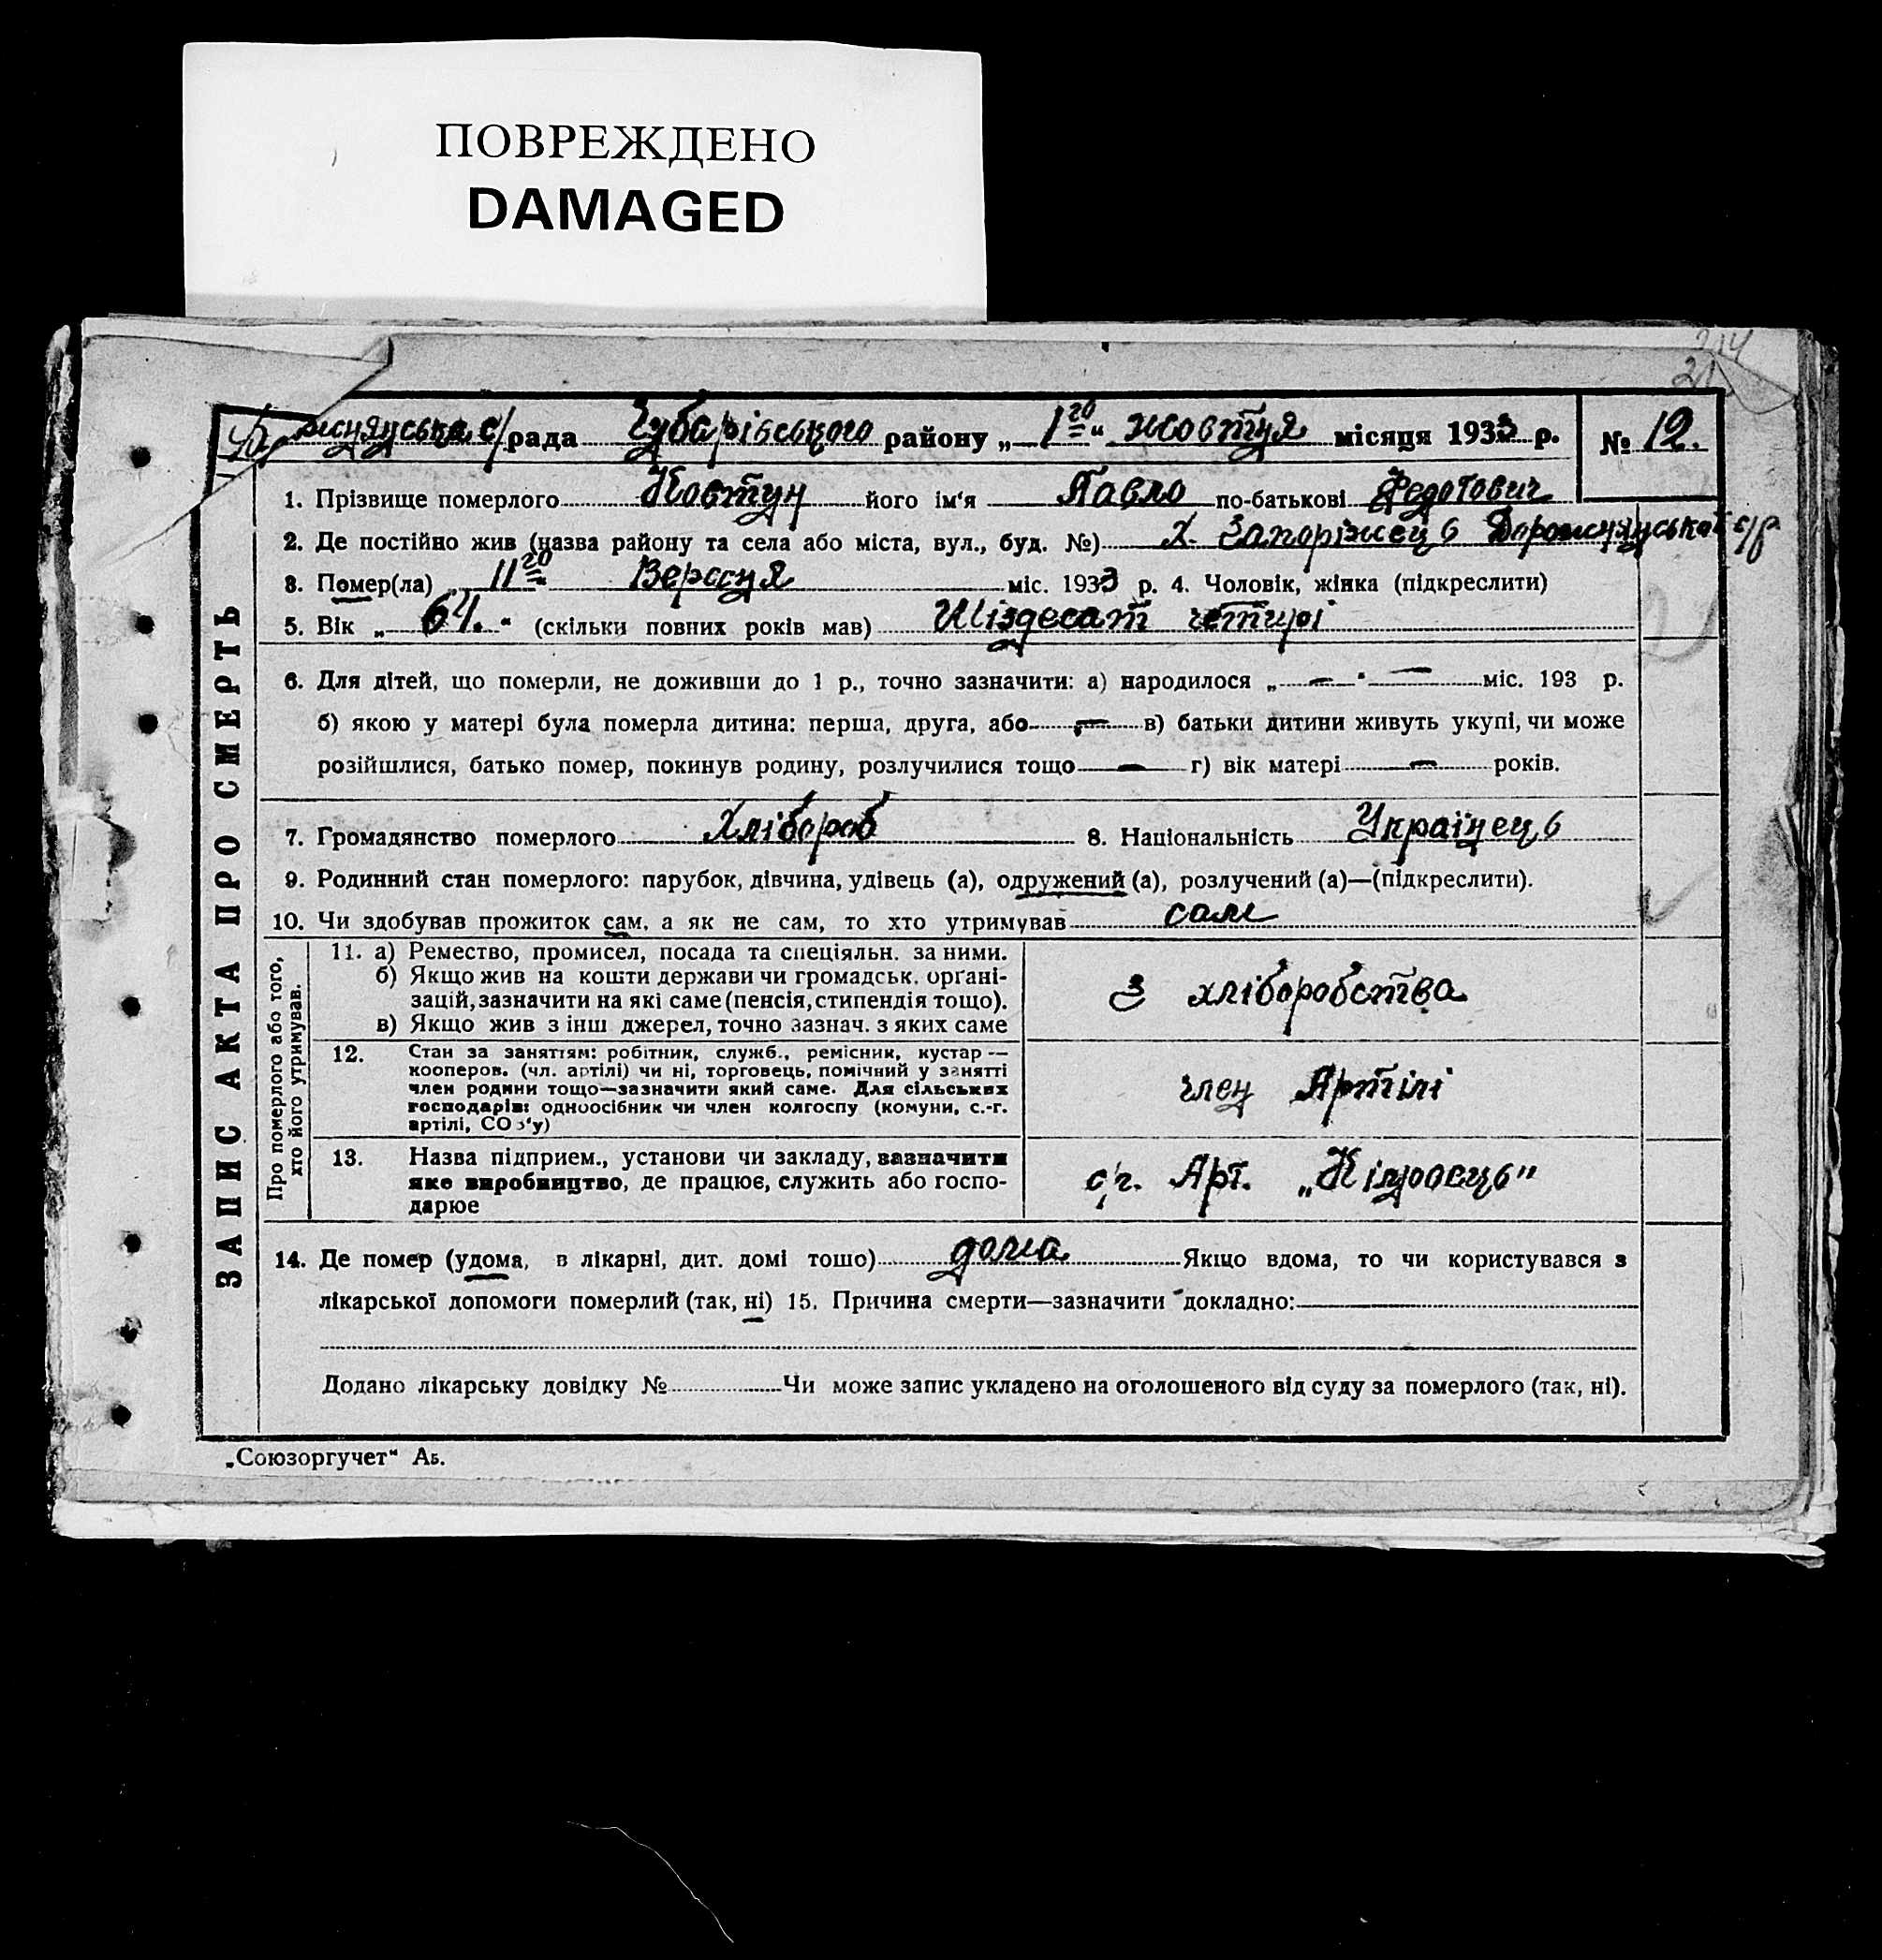 ПОВРЕЖДЕНО
DAMAGED
рада Чубарівського району „ 1го “ жовтня місяця 1933 р. № 12.
1. Прізвище померлого Ковтун його ім'я Павло по-батькові Федотович
2. Де постійно жив (назва району та села або міста, вул., буд. №) х. Запоріжець Дорожнянської с/р
3. Помер(ла) „ 11го “ Версня міс. 1933 р. 4. Чоловік, жінка (підкреслити)
5. Вік „ 64. “ (скільки повних років мав) Шіздесат четирі
6. Для дітей, що померли, не доживши до 1 р., точно зазначити: а) народилося „ — “ — міс. 193 р.
б) якою у матері була померла дитина: перша, друга, або — в) батьки дитини живуть укупі, чи може
розійшлися, батько помер, покинув родину, розлучилися тощо — г) вік матері — років.
7. Громадянство померлого Хлібороб 8. Національність Українець
9. Родинний стан померлого: парубок, дівчина, удівець (а), одружений (а), розлучений (а)—(підкреслити).
10. Чи здобував прожиток сам, а як не сам, то хто утримував сам
ЗАПИС АКТА ПРО СМЕРТЬ
Про померлого або того,
хто його утримував.
11. а) Ремество, промисел, посада та спеціяльн. за ними.
б) Якщо жив на кошти держави чи громадськ. орґані-
зацій, зазначити на які саме (пенсія, стипендія тощо).
в) Якщо жив з інш джерел, точно зазнач. з яких саме
З хліборобства
12. Стан за заняттям: робітник, служб., ремісник, кустар —
кооперов. (чл. артілі) чи ні, торговець, помічний у занятті
член родини тощо—зазначити який саме. Для сільських
господарів: одноосібник чи член колгоспу (комуни, с.-г.
артілі, СОз'у)
член Артілі
13. Назва підприєм., установи чи закладу, зазначити
яке виробництво, де працює, служить або госпо-
дарює
с/г. Арт.
14. Де помер (удома, в лікарні, дит. домі тощо) дома Якщо вдома, то чи користувався з
лікарської допомоги померлий (так, ні) 15. Причина смерти—зазначити докладно:
Додано лікарську довідку № Чи може запис укладено на оголошеного від суду за померлого (так, ні).
„Союзоргучет“ Аб.